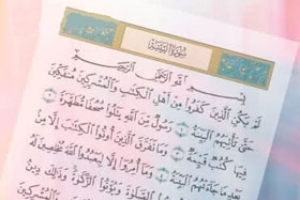 سُورَةُ الْبَيِّنَةِ
بِسْمِ اللَّهِ الرَّحْمَٰنِ الرَّحِيمِ
لَمْ يَكُنِ الَّذِينَ كَفَرُوا مِنْ أَهْلِ الْكِتَابِ وَالْمُشْرِكِينَ مُنْفَكِّينَ
حَتَّىٰ تَأْتِيَهُمُ الْبَيِّنَةُ رَسُولٌ مِنَ اللَّهِ يَتْلُوا صُحُفًا مُطَهَّرَةً
فِيهَا كُتُبٌ قَيِّمَةٌ وَمَا تَفَرَّقَ الَّذِينَ أُوتُوا الْكِتَابَ إِلَّا مِنْ
بَعْدِ مَا جَاءَتْهُمُ الْبَيِّنَةُ وَمَا أُمِرُوا إِلَّا لِيَعْبُدُوا اللَّهَ مُخْلِصِينَ لَهُ
الصَّلَاةَ وَيُؤْتُوا الزَّكَاةَ وَذَٰلِكَ دِينُ
وَالْمُشْرِكِينَ